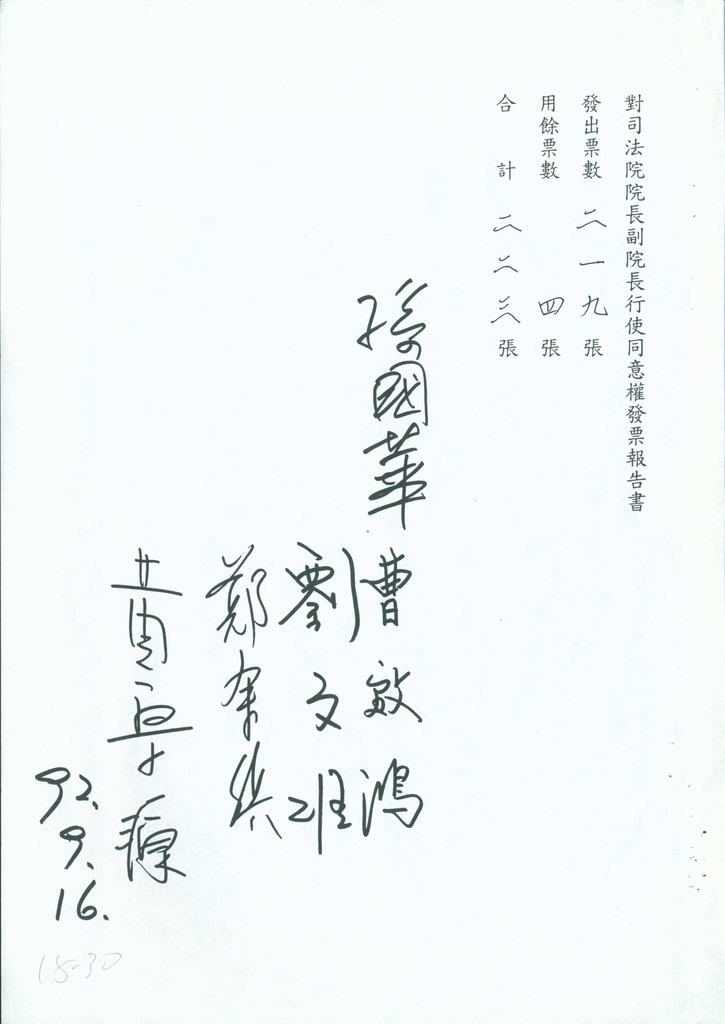 對司法院院長副院長行使同意權發票報告書
發出票數 二一九張
用餘票數 四張
合計 二二三張
孫國華
曹啟鴻
劉文雄
鄭
黃
92.9.16.
18-30